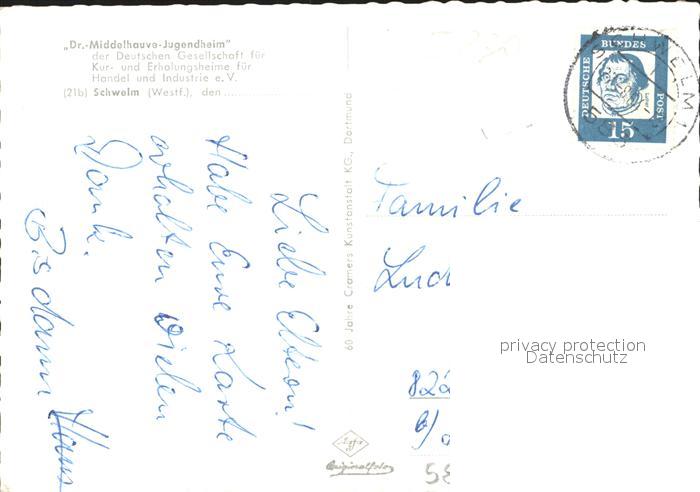 „Dr.-Middelhauve-Jugendheim"
der Deutschen Gesellschaft für
Kur- und Erholungsheime für
Handel und Industrie e. V.
(21b) Schwelm (Westf.), den
Liebe Eltern!
Habe Eure Karte
erhalten Vielen
Dank.
Bis dann Hans
60 Jahre Cramers Kunstanstalt KG., Dortmund
SCHWELM 1
DEUTSCHE BUNDES POST
Luther
15
Familie
Lud
privacy protection
Datenschutz
822
Agfa
Originalfoto